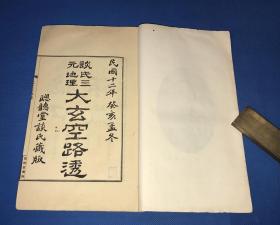 民國十二年癸亥孟冬
談氏三元地理
大玄空路透
聽堂談氏藏版